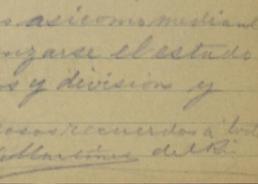 asi como mediant
nzarse el estado
s y divisions y
osos recuerdos á tod
Martínez del R